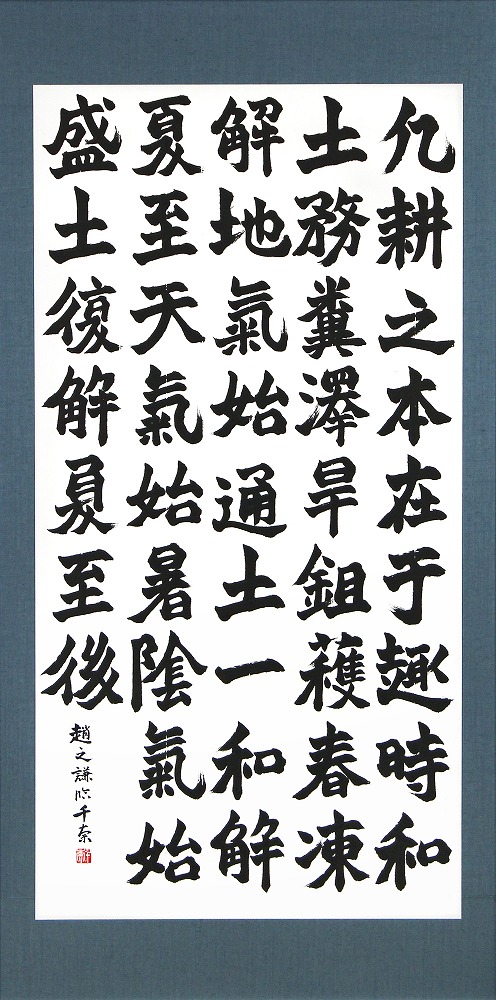 凡耕之本在于趣時和
土務糞澤旱鉏穫春凍
解地氣始通土一和解
夏至天氣始暑陰氣始
盛土復解夏至後
趙之謙臨千奈